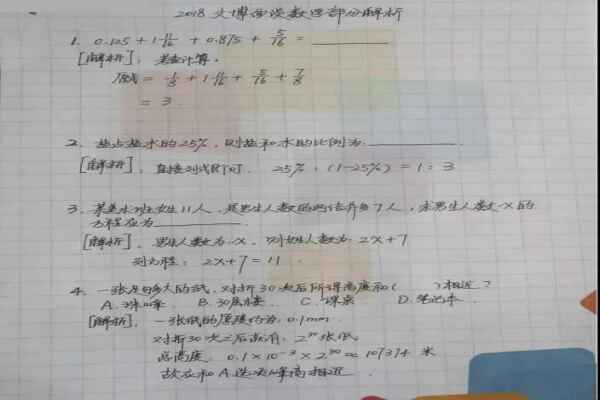 2018
1. 0.125 + 1 11/16 + 0.875 + 5/16 = ________
[解析], 考查计算。
原式 = 1/8 + 1 11/16 + 5/16 + 7/8
= 3
2. 盐占盐水的25%, 则盐和水的比例为:________
[解析], 直接列式即可. 25% : (1-25%) = 1 : 3
3. 女生11人, 男生人数的 7人, 求男生人数x的
方程应为________
[解析], 男生人数为x, 则女生人数为 2x+7
列方程: 2x+7 = 11
4. 一张足够大的纸, 对折30次后所得高度和( )相近?
A. 珠峰 B. 30层楼 C. 课桌 D. 笔记本
[解析], 一张纸的厚度约为 0.1mm
对折30次之后就有: 2³⁰张纸
总高度: 0.1×10⁻³×2³⁰ ≈ 107374 米
故应和A选项 高相近.